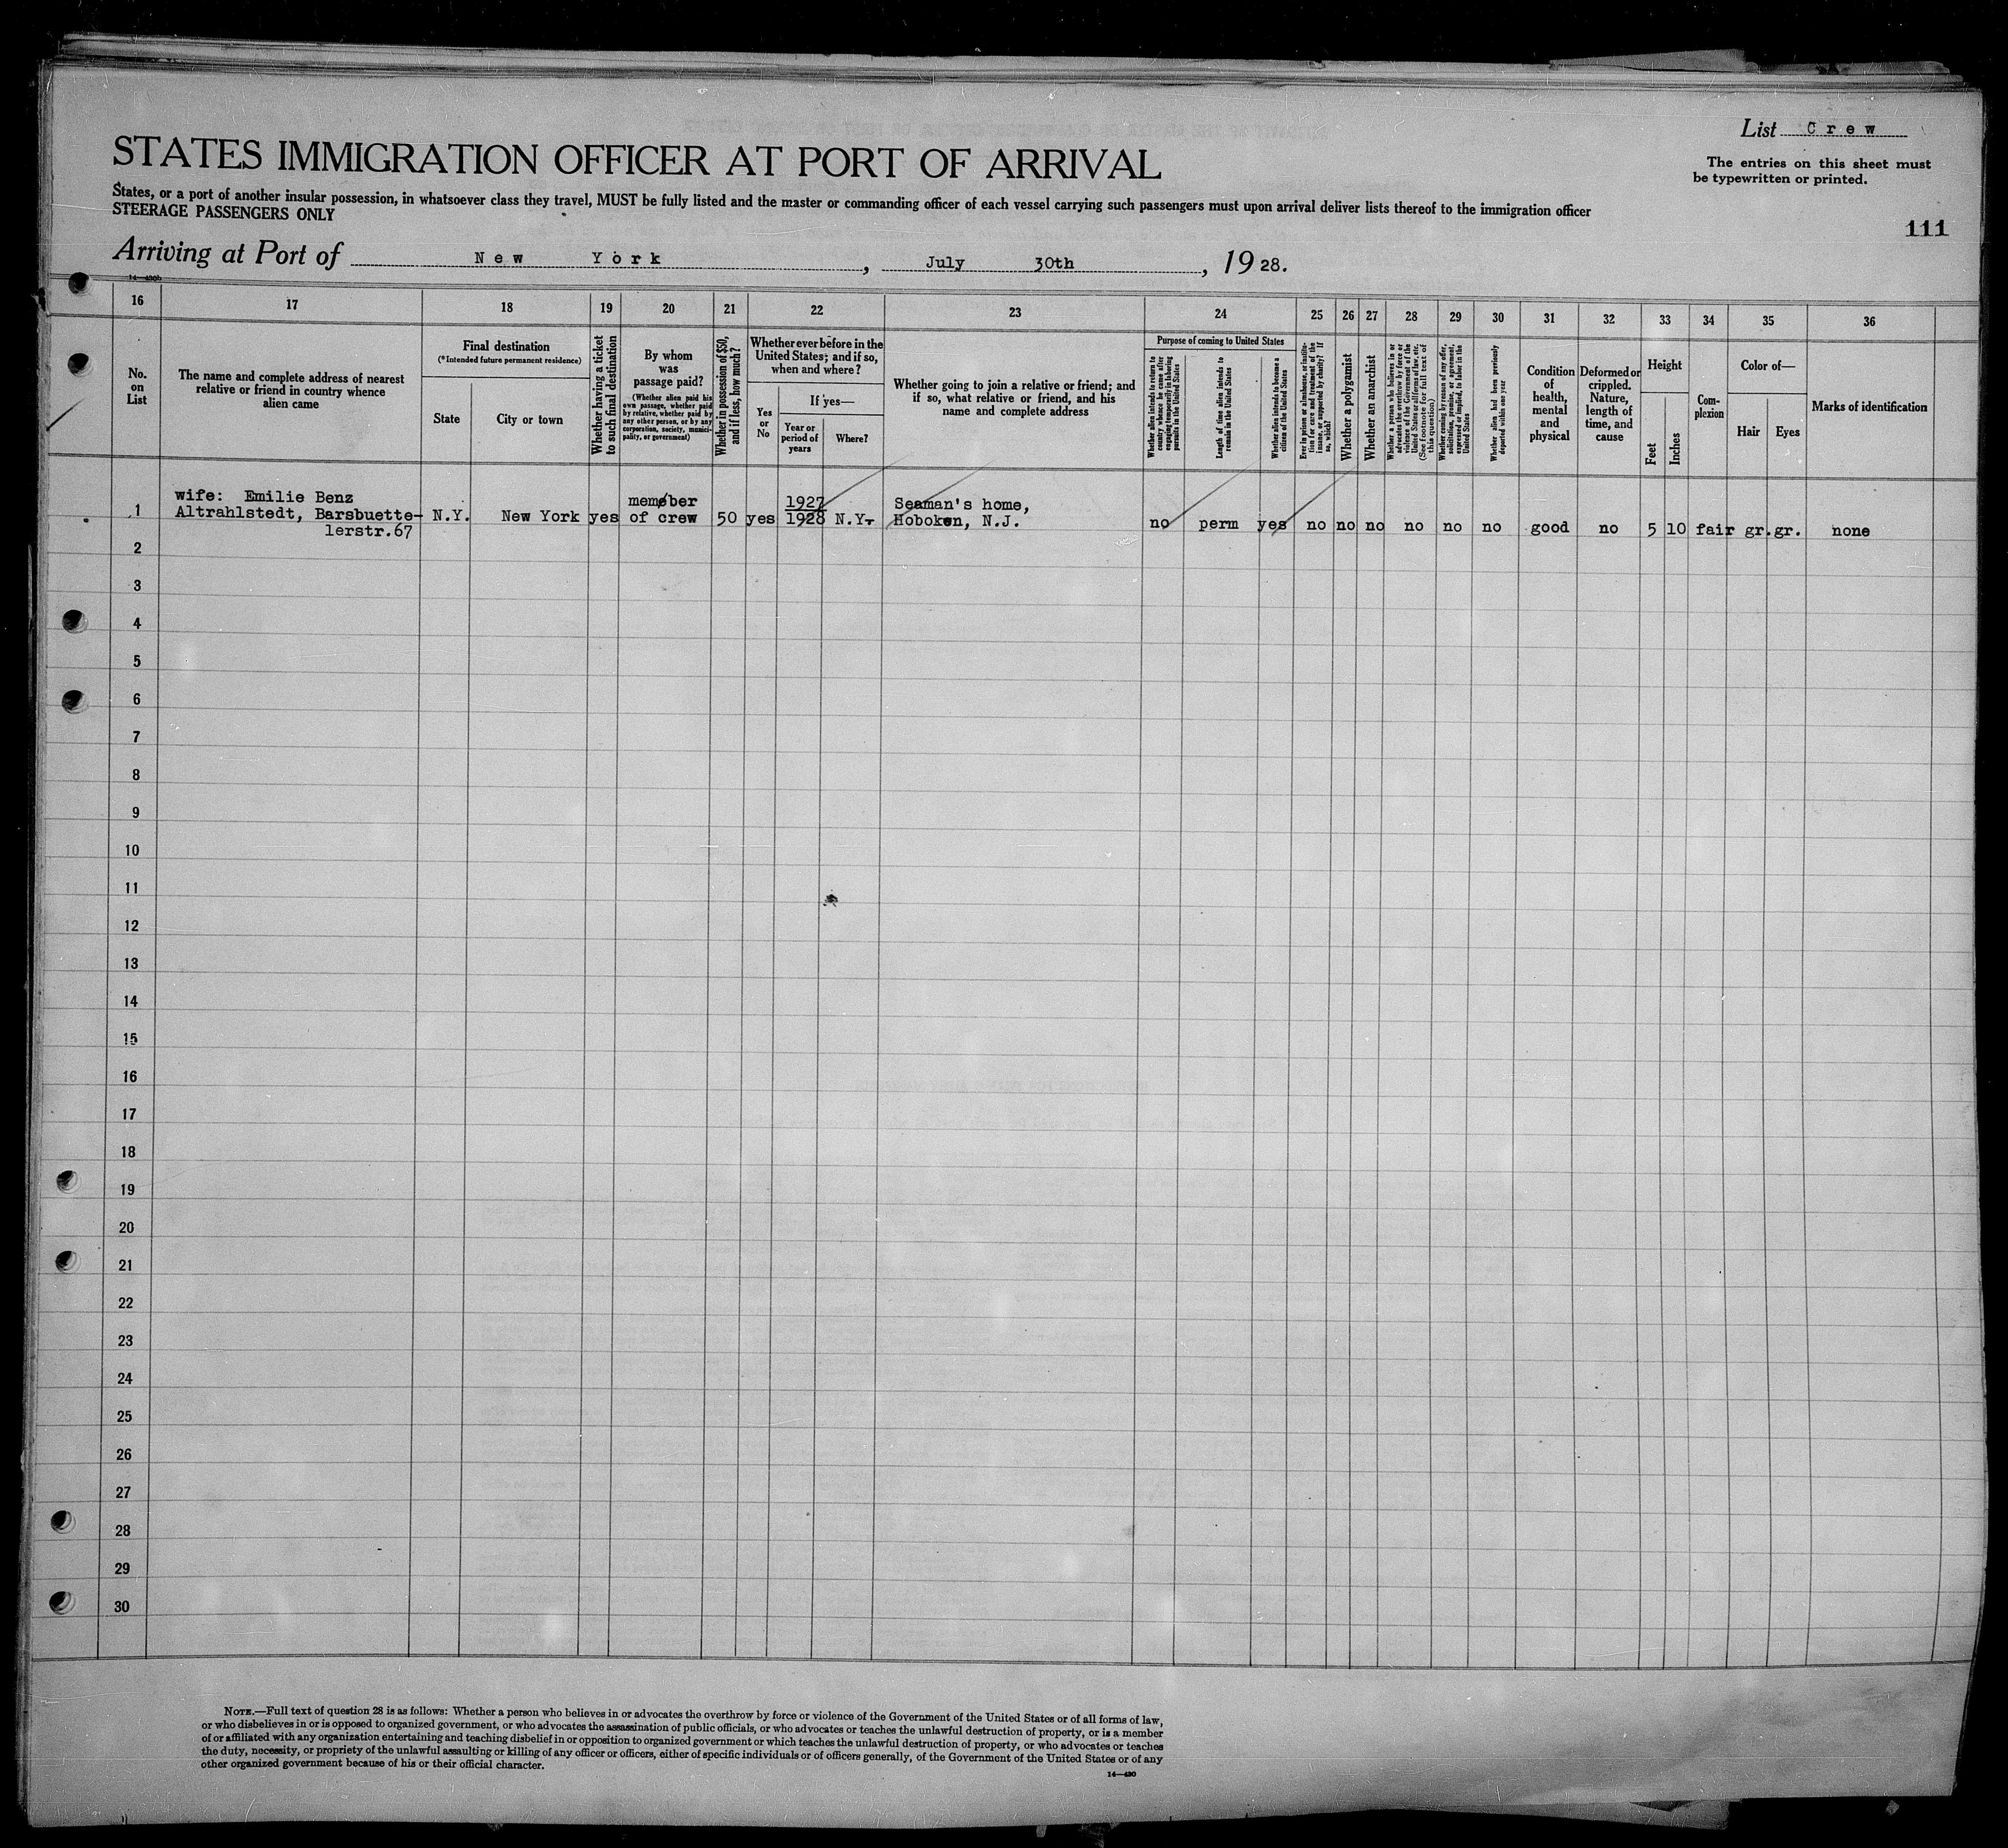 List Crew
The entries on this sheet must
be typewritten or printed.
STATES IMMIGRATION OFFICER AT PORT OF ARRIVAL
States, or a port of another insular possession, in whatsoever class they travel, MUST be fully listed and the master or commanding officer of each vessel carrying such passengers must upon arrival deliver lists thereof to the immigration officer
STEERAGE PASSENGERS ONLY
111
Arriving at Port of New York, July 30th, 1928.
14—430b
16 17 18 19 20 21 22 23 24 25 26 27 28 29 30 31 32 33 34 35 36
No.
on
List
The name and complete address of nearest
relative or friend in country whence
alien came
Final destination
(*Intended future permanent residence)
State
City or town
Whether having a ticket
to such final destination
By whom
was
passage paid?
(Whether alien paid his
own passage, whether paid
by relative, whether paid by
any other person, or by any
corporation, society, munici-
pality, or government)
Whether in possession of $50,
and if less, how much?
Whether ever before in the
United States; and if so,
when and where?
Yes
or
No
If yes—
Year or
period of
years
Where?
Whether going to join a relative or friend; and
if so, what relative or friend, and his
name and complete address
Purpose of coming to United States
Whether alien intends to return to
country whence he came after
engaging temporarily in laboring
pursuits in the United States
Length of time alien intends to
remain in the United States
Whether alien intends to become a
citizen of the United States
Ever in prison or almshouse, or institu-
tion for care and treatment of the
insane, or supported by charity? If
so, which?
Whether a polygamist
Whether an anarchist
Whether a person who believes in or
advocates the overthrow by force or
violence of the Government of the
United States or all forms of law, etc.
(See footnote for full text of
this question)
Whether coming by reason of any offer,
solicitation, promise, or agreement,
expressed or implied, to labor in the
United States
Whether alien had been previously
deported within one year
Condition
of
health,
mental
and
physical
Deformed or
crippled.
Nature,
length of
time, and
cause
Height
Feet
Inches
Com-
plexion
Color of—
Hair
Eyes
Marks of identification
wife: Emilie Benz
Altrahlstedt, Barsbuette-
lerstr.67
1 N.Y. New York yes
member
of crew
50 yes
1927
1928
N.Y.
Seaman's home,
Hoboken, N.J.
no perm yes no no no no no no good no 5 10 fair gr. gr. none
2
3
4
5
6
7
8
9
10
11
12
13
14
15
16
17
18
19
20
21
22
23
24
25
26
27
28
29
30
NOTE.—Full text of question 28 is as follows: Whether a person who believes in or advocates the overthrow by force or violence of the Government of the United States or of all forms of law,
or who disbelieves in or is opposed to organized government, or who advocates the assassination of public officials, or who advocates or teaches the unlawful destruction of property, or is a member
of or affiliated with any organization entertaining and teaching disbelief in or opposition to organized government or which teaches the unlawful destruction of property, or who advocates or teaches
the duty, necessity, or propriety of the unlawful assaulting or killing of any officer or officers, either of specific individuals or of officers generally, of the Government of the United States or of any
other organized government because of his or their official character.
14—430